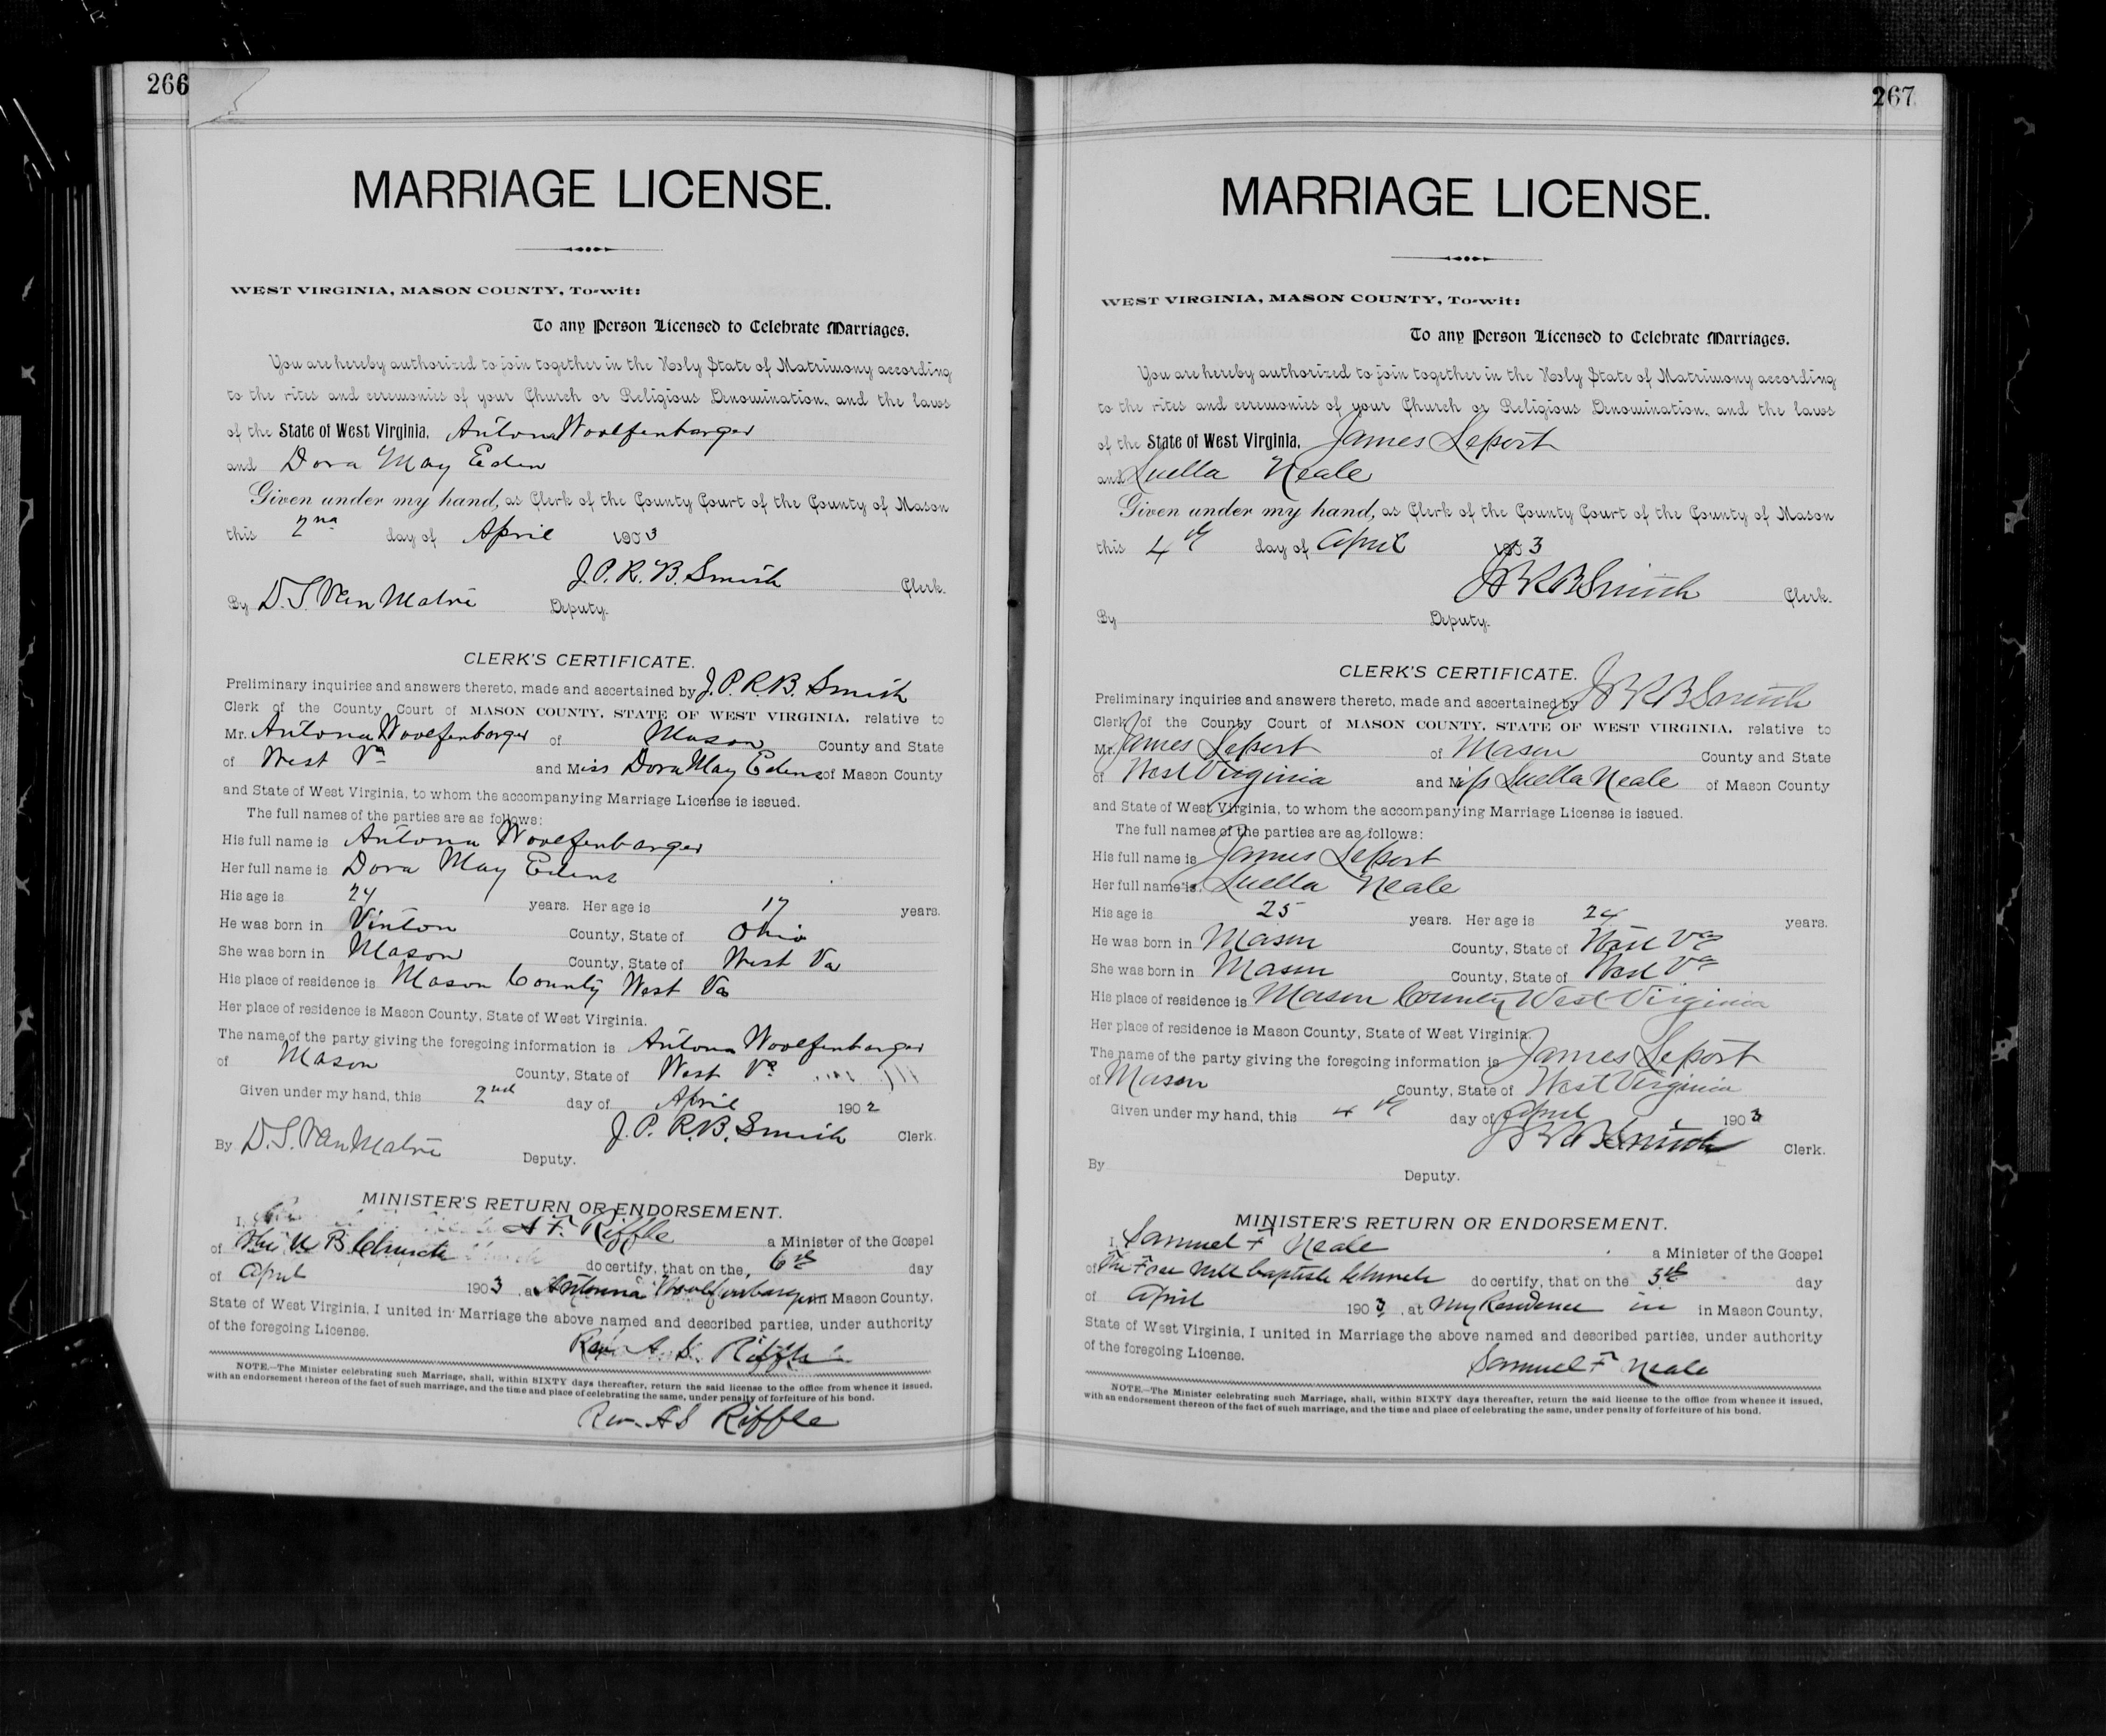 266
MARRIAGE LICENSE.
WEST VIRGINIA, MASON COUNTY, To-wit:
To any Person Licensed to Celebrate Marriages.
You are hereby authorized to join together in the Holy State of Matrimony according
to the rites and ceremonies of your Church or Religious Denomination, and the laws
of the State of West Virginia, Antona Woolfenbarger
and Dora May Eden
Given under my hand, as Clerk of the County Court of the County of Mason
this 2nd day of April 1903
J. P. R. B. Smith Clerk.
By D. S. Van Matre Deputy.
CLERK'S CERTIFICATE.
Preliminary inquiries and answers thereto, made and ascertained by J. P. R. B. Smith
Clerk of the County Court of MASON COUNTY, STATE OF WEST VIRGINIA, relative to
Mr. Antona Woolfenbarger of Mason County and State
of West Va and Miss Dora May Edens of Mason County
and State of West Virginia, to whom the accompanying Marriage License is issued.
The full names of the parties are as follows:
His full name is Antona Woolfenbarger
Her full name is Dora May Edens
His age is 24 years. Her age is 17 years.
He was born in Vinton County, State of Ohio
She was born in Mason County, State of West Va
His place of residence is Mason County West Va
Her place of residence is Mason County, State of West Virginia.
The name of the party giving the foregoing information is Antona Woolfenbarger
of Mason County, State of West Va
Given under my hand, this 2nd day of April 1902
J. P. R. B. Smith Clerk.
By D. S. Van Matre Deputy.
MINISTER'S RETURN OR ENDORSEMENT.
I, A F. Riffle a Minister of the Gospel
of the U B Church do certify, that on the, 6th day
of April 1903, at Antonia Woolfenbarger in Mason County,
State of West Virginia, I united in Marriage the above named and described parties, under authority
of the foregoing License.
Rev. A. S. Riffle
NOTE.—The Minister celebrating such Marriage, shall, within SIXTY days thereafter, return the said license to the office from whence it issued,
with an endorsement thereon of the fact of such marriage, and the time and place of celebrating the same, under penalty of forfeiture of his bond.
Rev. A S Riffle
267
MARRIAGE LICENSE.
WEST VIRGINIA, MASON COUNTY, To-wit:
To any Person Licensed to Celebrate Marriages.
You are hereby authorized to join together in the Holy State of Matrimony according
to the rites and ceremonies of your Church or Religious Denomination, and the laws
of the State of West Virginia, James Leport
and Luella Neale
Given under my hand, as Clerk of the County Court of the County of Mason
this 4th day of April 1903
J P R B Smith Clerk.
By Deputy.
CLERK'S CERTIFICATE.
Preliminary inquiries and answers thereto, made and ascertained by J P R B Smith
Clerk of the County Court of MASON COUNTY, STATE OF WEST VIRGINIA, relative to
Mr. James Leport of Mason County and State
of West Virginia and Miss Luella Neale of Mason County
and State of West Virginia, to whom the accompanying Marriage License is issued.
The full names of the parties are as follows:
His full name is James Leport
Her full name is Luella Neale
His age is 25 years. Her age is 24 years.
He was born in Mason County, State of West Va
She was born in Mason County, State of West Va
His place of residence is Mason County West Virginia
Her place of residence is Mason County, State of West Virginia.
The name of the party giving the foregoing information is James Leport
of Mason County, State of West Virginia
Given under my hand, this 4th day of April 1903
J P R B Smith Clerk.
By Deputy.
MINISTER'S RETURN OR ENDORSEMENT.
I, Samuel F Neale a Minister of the Gospel
of The Free Will Baptist Church do certify, that on the 5th day
of April 1903, at My Residence in in Mason County,
State of West Virginia, I united in Marriage the above named and described parties, under authority
of the foregoing License.
Samuel F Neale
NOTE.—The Minister celebrating such Marriage, shall, within SIXTY days thereafter, return the said license to the office from whence it issued,
with an endorsement thereon of the fact of such marriage, and the time and place of celebrating the same, under penalty of forfeiture of his bond.